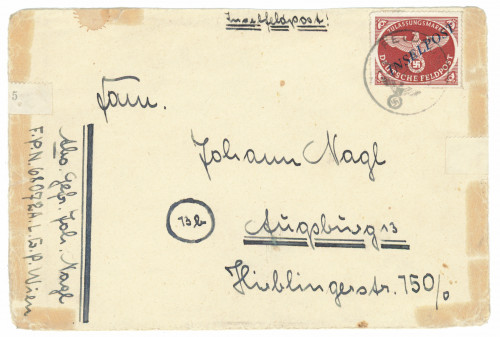 Inselfeldpost!
ZULASSUNGSMARKE
INSELPOST
DEUTSCHE FELDPOST
5
Fam.
Johann Nagl
13b
Augsburg 13
Hieblingerstr. 150/0
Abs. Gefr. Joh. Nagl
F.P.N. 68072A L.G.P. Wien